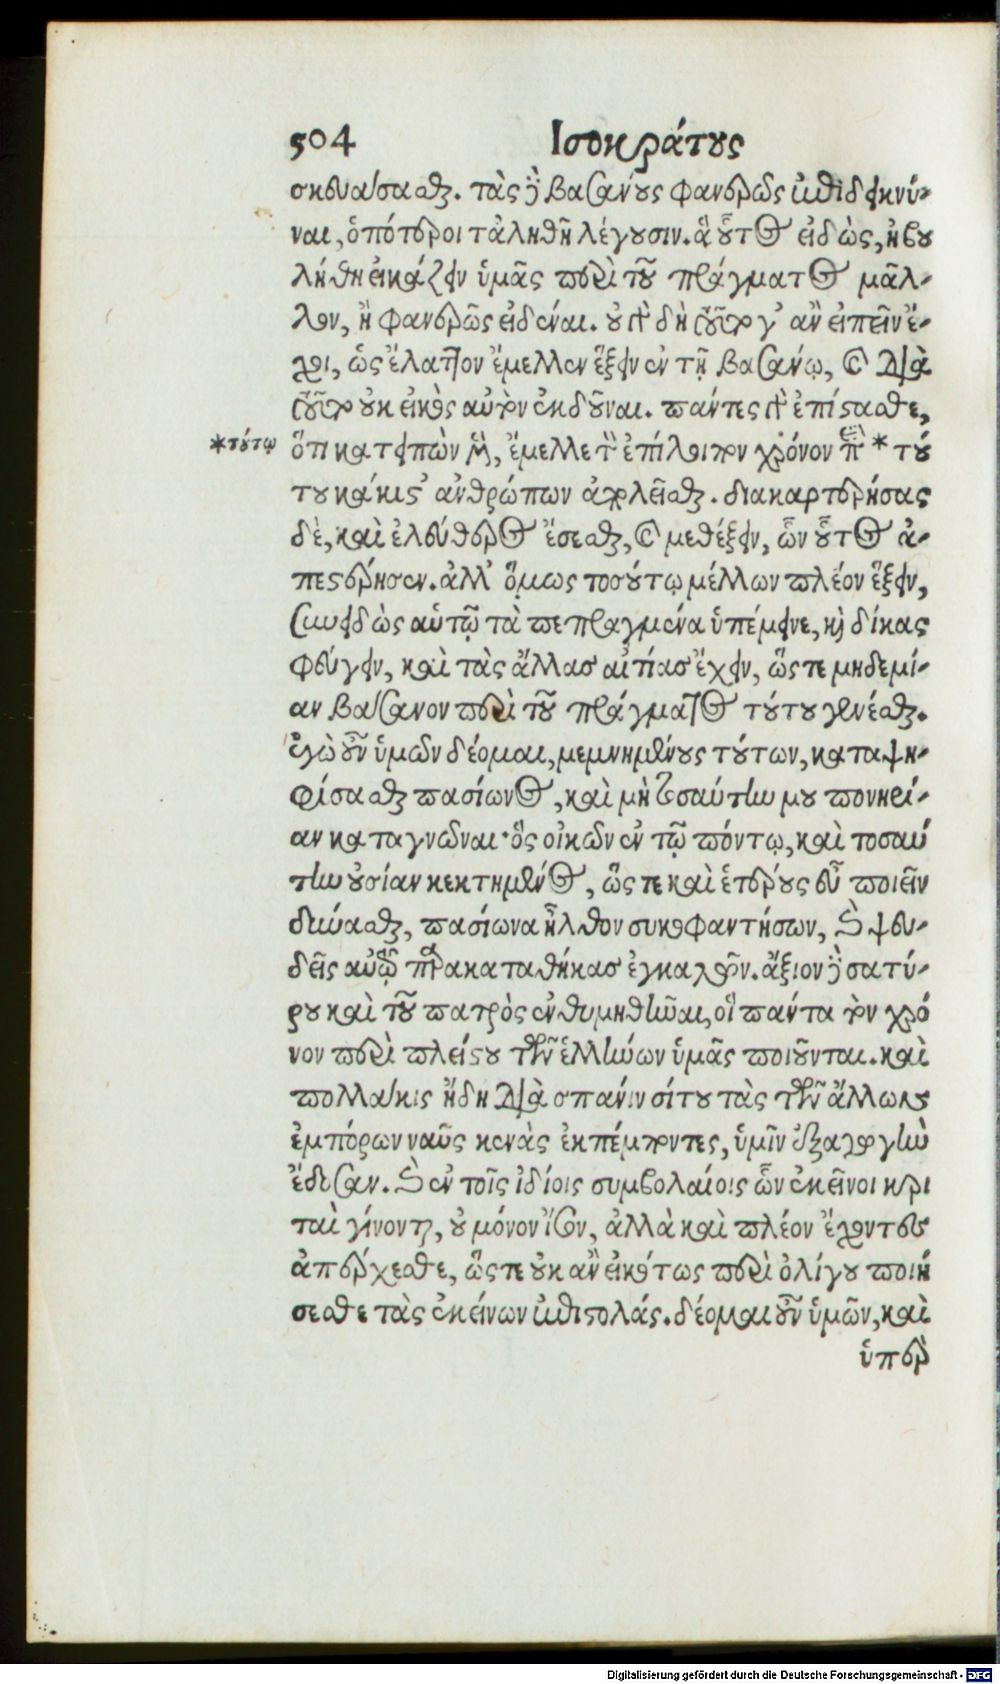 504 Ισοκράτους
σκευάσασθαι. τὰς δὲ βασάνους φανερῶς ἐπιδεικνύ-
ναι, ὁπότεροι τἀληθῆ λέγουσιν. ἃ οὗτος εἰδὼς, ἠβου
λήθη εἰκάζειν ὑμᾶς περὶ τοῦ πράγματος μᾶλ-
λον, ἢ φανερῶς εἰδέναι. οὐ γὰρ δὴ τοῦτό γ' ἂν εἰπεῖν ἔ-
χοι, ὡς ἔλαττον ἔμελλεν ἕξειν ἐν τῇ βασάνῳ, καὶ διὰ
τοῦτο οὐκ εἰκὸς αὐτὸν ἐκδοῦναι. πάντες γὰρ ἐπίστασθε,
*τούτῳ ὅτι κατειπὼν μὲν, ἔμελλε τὸν ἐπίλοιπον χρόνον ὑπὸ * τού
του κάκιστ' ἀνθρώπων ἀπολεῖσθαι. διακαρτερήσας
δὲ, καὶ ἐλεύθερος ἔσεσθαι, καὶ μεθέξειν, ὧν οὗτος ἀ-
πεστέρησεν. ἀλλ' ὅμως τοσούτῳ μέλλων πλέον ἕξειν,
συνειδὼς αὑτῷ τὰ πεπραγμένα ὑπέμεινε, καὶ δίκας
φεύγειν, καὶ τὰς ἄλλας αἰτίας ἔχειν, ὥστε μηδεμί-
αν βάσανον περὶ τοῦ πράγματος τούτου γενέσθαι.
ἐγὼ οὖν ὑμῶν δέομαι, μεμνημένους τούτων, καταψη-
φίσασθαι πασίωνος, καὶ μὴ τοσαύτην μου πονηρί-
αν καταγνῶναι· ὃς οἰκῶν ἐν τῷ πόντῳ, καὶ τοσαύ
την οὐσίαν κεκτημένος, ὥστε καὶ ἑτέρους εὖ ποιεῖν
δύνασθαι, πασίωνα ἦλθον συκοφαντήσων, καὶ ψευ-
δεῖς αὐτῷ παρακαταθήκας ἐγκαλῶν. ἄξιον δὲ σατύ-
ρου καὶ τοῦ πατρὸς ἐνθυμηθῆναι, οἳ πάντα τὸν χρό
νον περὶ πλείστου τῶν ἑλλήνων ὑμᾶς ποιοῦνται. καὶ
πολλάκις ἤδη διὰ σπάνιν σίτου τὰς τῶν ἄλλων
ἐμπόρων ναῦς κενὰς ἐκπέμποντες, ὑμῖν ἐξαγωγὴν
ἔδοσαν. καὶ ἐν τοῖς ἰδίοις συμβολαίοις ὧν ἐκεῖνοι κρι
ταὶ γίνονται, οὐ μόνον ἴσον, ἀλλὰ καὶ πλέον ἔχοντες
ἀπέρχεσθε, ὥστε οὐκ ἂν εἰκότως περὶ ὀλίγου ποιή
σεσθε τὰς ἐκείνων ἐπιστολάς. δέομαι οὖν ὑμῶν, καὶ
ὑπὲρ
Digitalisierung gefördert durch die Deutsche Forschungsgemeinschaft - DFG